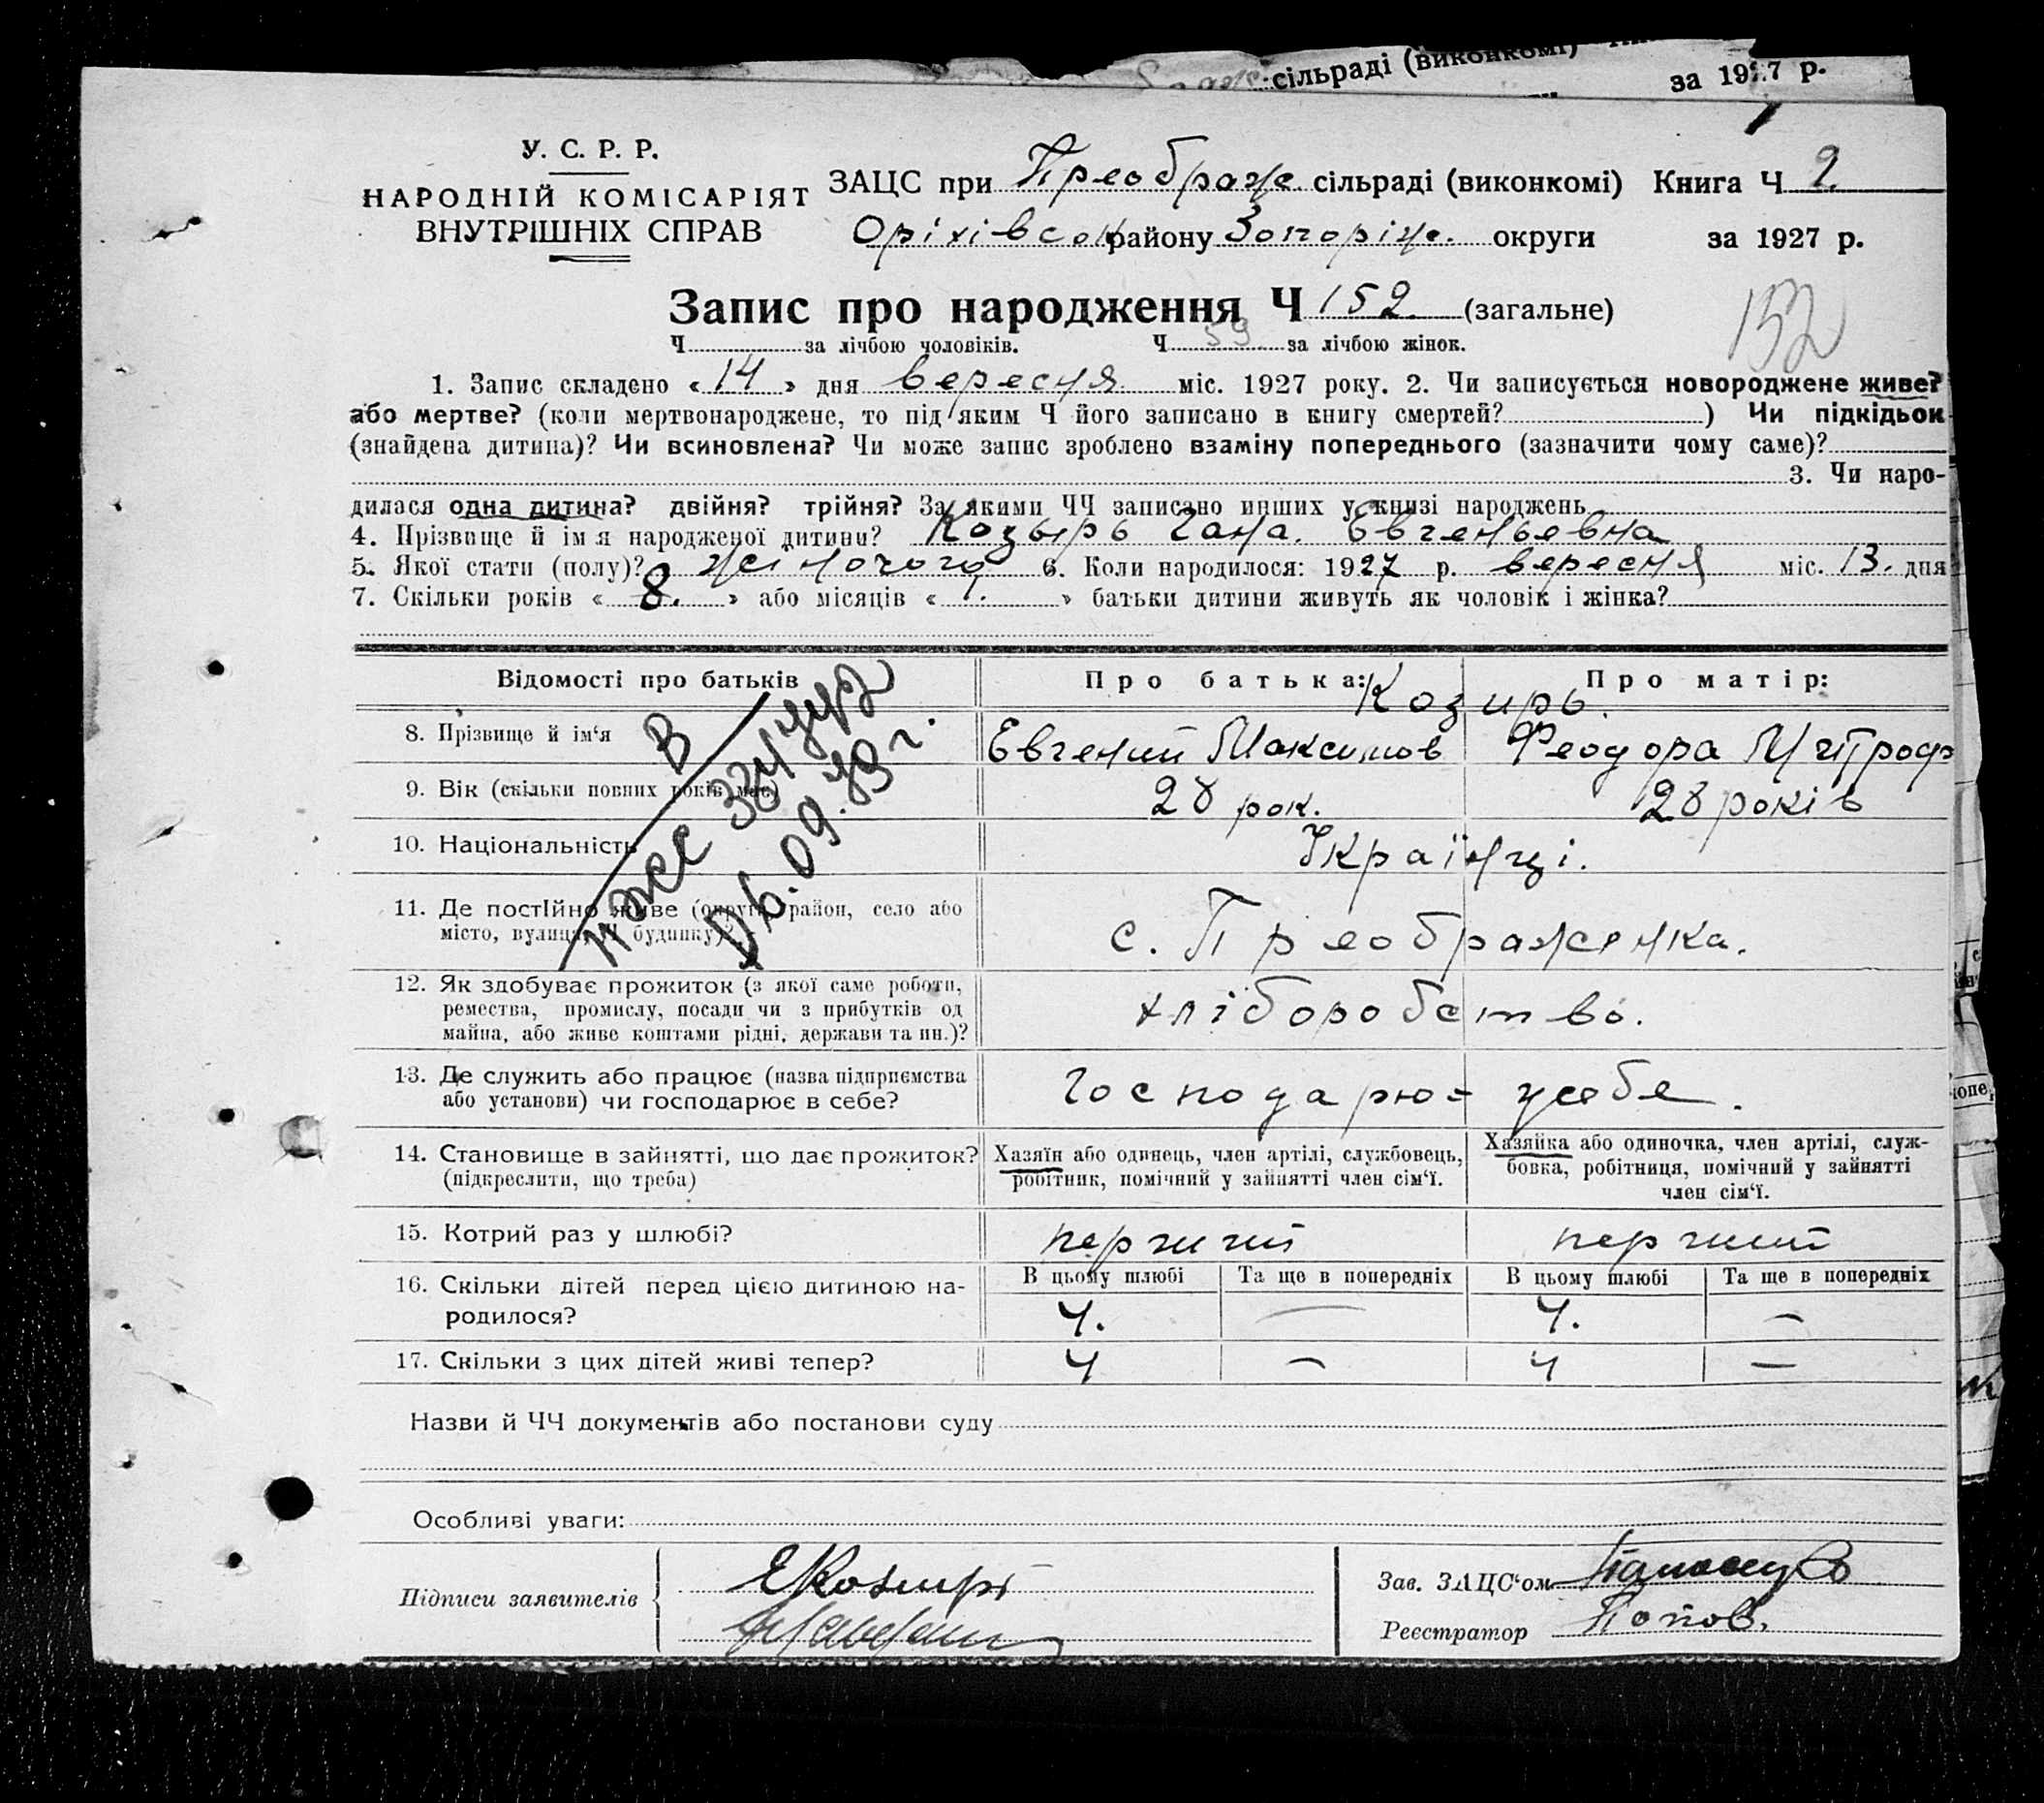 сільраді (виконкомі)
за 1927 р.
У. С. Р. Р.
НАРОДНІЙ КОМІСАРІЯТ
ВНУТРІШНІХ СПРАВ
ЗАЦС при Преображ. сільраді (виконкомі) Книга Ч 2.
Оріхівськ району Запоріж. округи за 1927 р.
Запис про народження Ч 152. (загальне)
152
Ч за лічбою чоловіків. Ч 59 за лічбою жінок.
1. Запис складено « 14 » дня вересня міс. 1927 року. 2. Чи записується новороджене живе?
або мертве? (коли мертвонароджене, то під яким Ч його записано в книгу смертей? ) Чи підкідьок
(знайдена дитина)? Чи всиновлена? Чи може запис зроблено взаміну попереднього (зазначити чому саме)?
3. Чи наро-
дилася одна дитина? двійня? трійня? За якими ЧЧ записано инших у книзі народжень
4. Прізвище й ім'я народженої дитини? Козырь Евгеньевна
5. Якої стати (полу)? жіночого 6. Коли народилося: 1927 р. вересня міс. 13. дня
7. Скільки років « 8. » або місяців « 1. » батьки дитини живуть як чоловік і жінка?
Відомості про батьків Про батька: Про матір:
Козирь.
8. Прізвище й ім'я Евгений Максимов Феодора Митроф
9. Вік (скільки повних років має) 28 рок. 28 років
10. Національність Українці.
11. Де постійно живе (округа, район, село або
місто, вулиця, Ч будинку)? с. Преображенка.
12. Як здобуває прожиток (з якої саме роботи,
ремества, промислу, посади чи з прибутків од
майна, або живе коштами рідні, держави та ин.)?
хліборобство.
13. Де служить або працює (назва підприємства
або установи) чи господарює в себе?
Господарю- усебе.
14. Становище в зайнятті, що дає прожиток?
(підкреслити, що треба)
Хазяїн або одинець, член артілі, службовець,
робітник, помічний у зайнятті член сім'ї.
Хазяйка або одиночка, член артілі, служ-
бовка, робітниця, помічний у зайнятті
член сім'ї.
15. Котрий раз у шлюбі? перший перший
16. Скільки дітей перед цією дитиною на-
родилося?
В цьому шлюбі Та ще в попередніх В цьому шлюбі Та ще в попередніх
4. — 4. —
17. Скільки з цих дітей живі тепер? 4 — 4 —
Назви й ЧЧ документів або постанови суду
Особливі уваги:
Підписи заявителів ЕКозирь
Зав. ЗАЦС'ом
Реєстратор Попов.